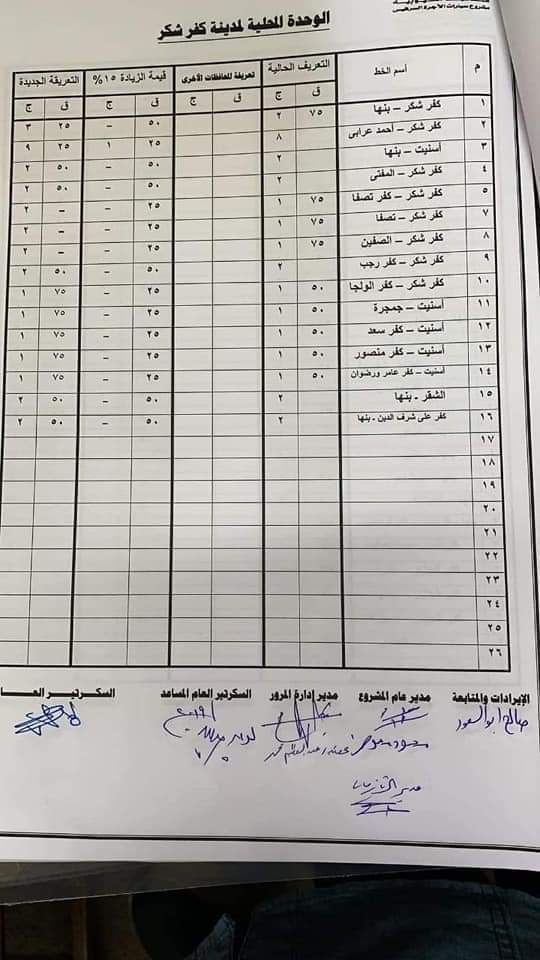 مشروع سيارات الأجرة السرفيس
الوحدة المحلية لمدينة كفر شكر
م أسم الخط التعريف الحالية تعريفة للمحافظات الأخرى قيمة الزيادة ١٥% التعريقة الجديدة
ق ج ق ج ق ج ق ج
١ كفر شكر – بنها ٧٥ ٢ ٥٠ – ٢٥ ٣
٢ كفر شكر – أحمد عرابى ٨ ٢٥ ١ ٢٥ ٩
٣ أسنيت – بنها ٢ ٥٠ – ٥٠ ٢
٤ كفر شكر – المفتى ٢ ٥٠ – ٥٠ ٢
٥ كفر شكر – كفر تصفا ٧٥ ١ ٢٥ – – ٢
٧ كفر شكر – تصفا ٧٥ ١ ٢٥ – – ٢
٨ كفر شكر – الصفين ٧٥ ١ ٢٥ – – ٢
٩ كفر شكر – كفر رجب ٢ ٥٠ – ٥٠ ٢
١٠ كفر شكر – كفر الولجا ٥٠ ١ ٢٥ – ٧٥ ١
١١ أسنيت – جمجرة ٥٠ ١ ٢٥ – ٧٥ ١
١٢ أسنيت – كفر سعد ٥٠ ١ ٢٥ – ٧٥ ١
١٣ أسنيت – كفر منصور ٥٠ ١ ٢٥ – ٧٥ ١
١٤ أسنيت – كفر عامر ورضوان ٥٠ ١ ٢٥ – ٧٥ ١
١٥ الشقر - بنها ٢ ٥٠ – ٥٠ ٢
١٦ كفر على شرف الدين - بنها ٢ ٥٠ – ٥٠ ٢
١٧
١٨
١٩
٢٠
٢١
٢٢
٢٣
٢٤
٢٥
٢٦
الإيرادات والمتابعة مدير عام المشروع مدير إدارة المرور السكرتير العام المساعد السكرتير العا
صالح ابو السعود